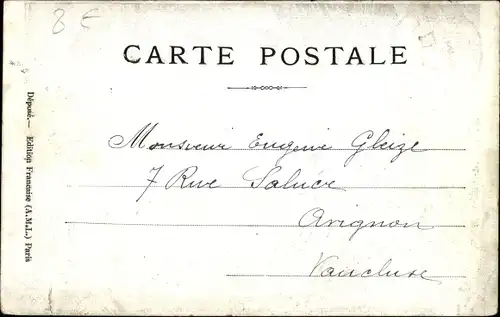 8 €
CARTE POSTALE
Monsieur Eugène Gleize
7 Rue Saluce
Avignon
Vaucluse
Déposé.— Edition Française (A.M.L.) Paris